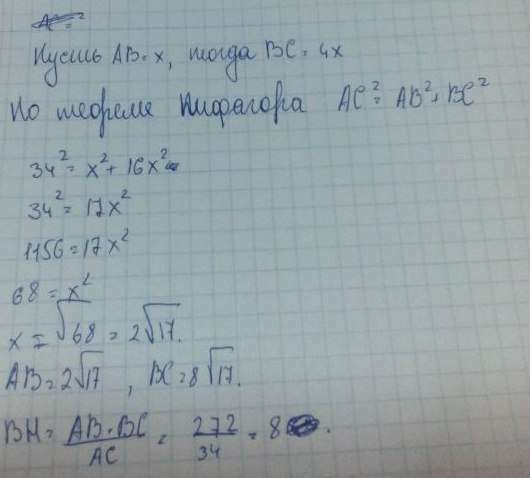 Пусть AB = x, тогда BC = 4x
По теореме Пифагора AC² = AB² + BC²
34² = x² + 16x²
34² = 17x²
1156 = 17x²
68 = x²
x = √68 = 2√17.
AB = 2√17 , BC = 8√17.
BH = AB · BC / AC = 272 / 34 = 8 .